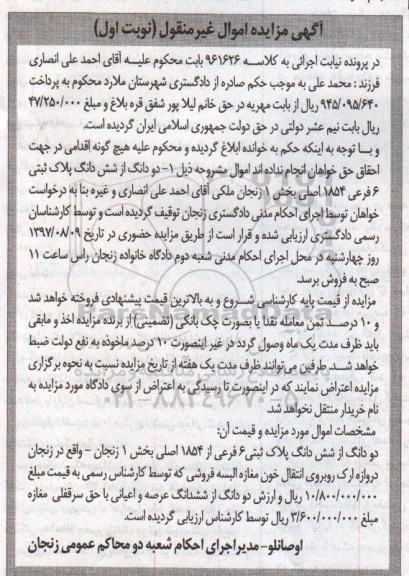 آگهی مزایده اموال غیرمنقول (نوبت اول)
در پرونده نیابت اجرائی به کلاسه ۹۶۱۶۲۶ بابت محکوم علیه آقای احمد علی انصاری
فرزند : محمد علی به موجب حکم صادره از دادگستری شهرستان ملارد محکوم به پرداخت
۹۴۵/۰۹۵/۶۴۰ ریال از بابت مهریه در حق خانم لیلا پور شفق قره بلاغ و مبلغ ۴۷/۲۵۰/۰۰۰
ریال بابت نیم عشر دولتی در حق دولت جمهوری اسلامی ایران گردیده است.
و با توجه به اینکه حکم به خوانده ابلاغ گردیده و محکوم علیه هیچ گونه اقدامی در جهت
احقاق حق خواهان انجام نداده اند اموال مشروحه ذیل ۱- دو دانگ از شش دانگ پلاک ثبتی
۶ فرعی ۱۸۵۴ اصلی بخش ۱ زنجان ملکی آقای احمد علی انصاری و غیره بنا به درخواست
خواهان توسط اجرای احکام مدنی دادگستری زنجان توقیف گردیده است و توسط کارشناسان
رسمی دادگستری ارزیابی شده و قرار است از طریق مزایده حضوری در تاریخ ۱۳۹۷/۰۸/۰۹
روز چهارشنبه در محل اجرای احکام مدنی شعبه دوم دادگاه خانواده زنجان راس ساعت ۱۱
صبح به فروش برسد.
مزایده از قیمت پایه کارشناسی شروع و به بالاترین قیمت پیشنهادی فروخته خواهد شد
و ۱۰ درصد ثمن معامله نقدا یا بصورت چک بانکی (تضمینی) از برنده مزایده اخذ و مابقی
باید ظرف مدت یک ماه وصول گردد در غیر اینصورت ۱۰ درصد ماخوذه به نفع دولت ضبط
خواهد شد. طرفین می‌توانند ظرف مدت یک هفته از تاریخ مزایده نسبت به نحوه برگزاری
مزایده اعتراض نمایند که در اینصورت تا رسیدگی به اعتراض از سوی دادگاه مورد مزایده به
نام خریدار منتقل نخواهد شد.
مشخصات اموال مورد مزایده و قیمت آن:
دو دانگ از شش دانگ پلاک ثبتی ۶ فرعی از ۱۸۵۴ اصلی بخش ۱ زنجان - واقع در زنجان
دروازه ارک روبروی انتقال خون مغازه البسه فروشی که توسط کارشناس رسمی به قیمت مبلغ
۱۰/۸۰۰/۰۰۰/۰۰۰ ریال و ارزش دو دانگ از ششدانگ عرصه و اعیانی با حق سرقفلی مغازه
مبلغ ۳/۶۰۰/۰۰۰/۰۰۰ ریال توسط کارشناس ارزیابی گردیده است.
اوصانلو- مدیر اجرای احکام شعبه دو محاکم عمومی زنجان